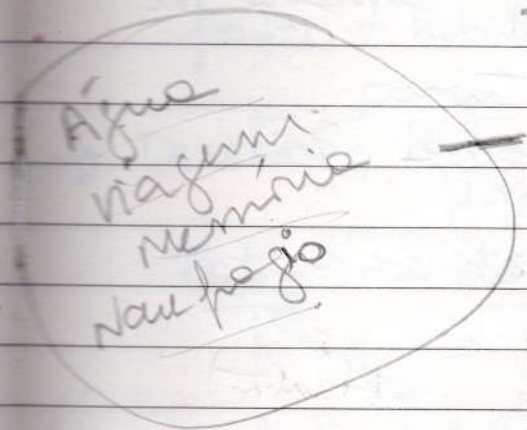 Água
viagem
memória
Naufrágio